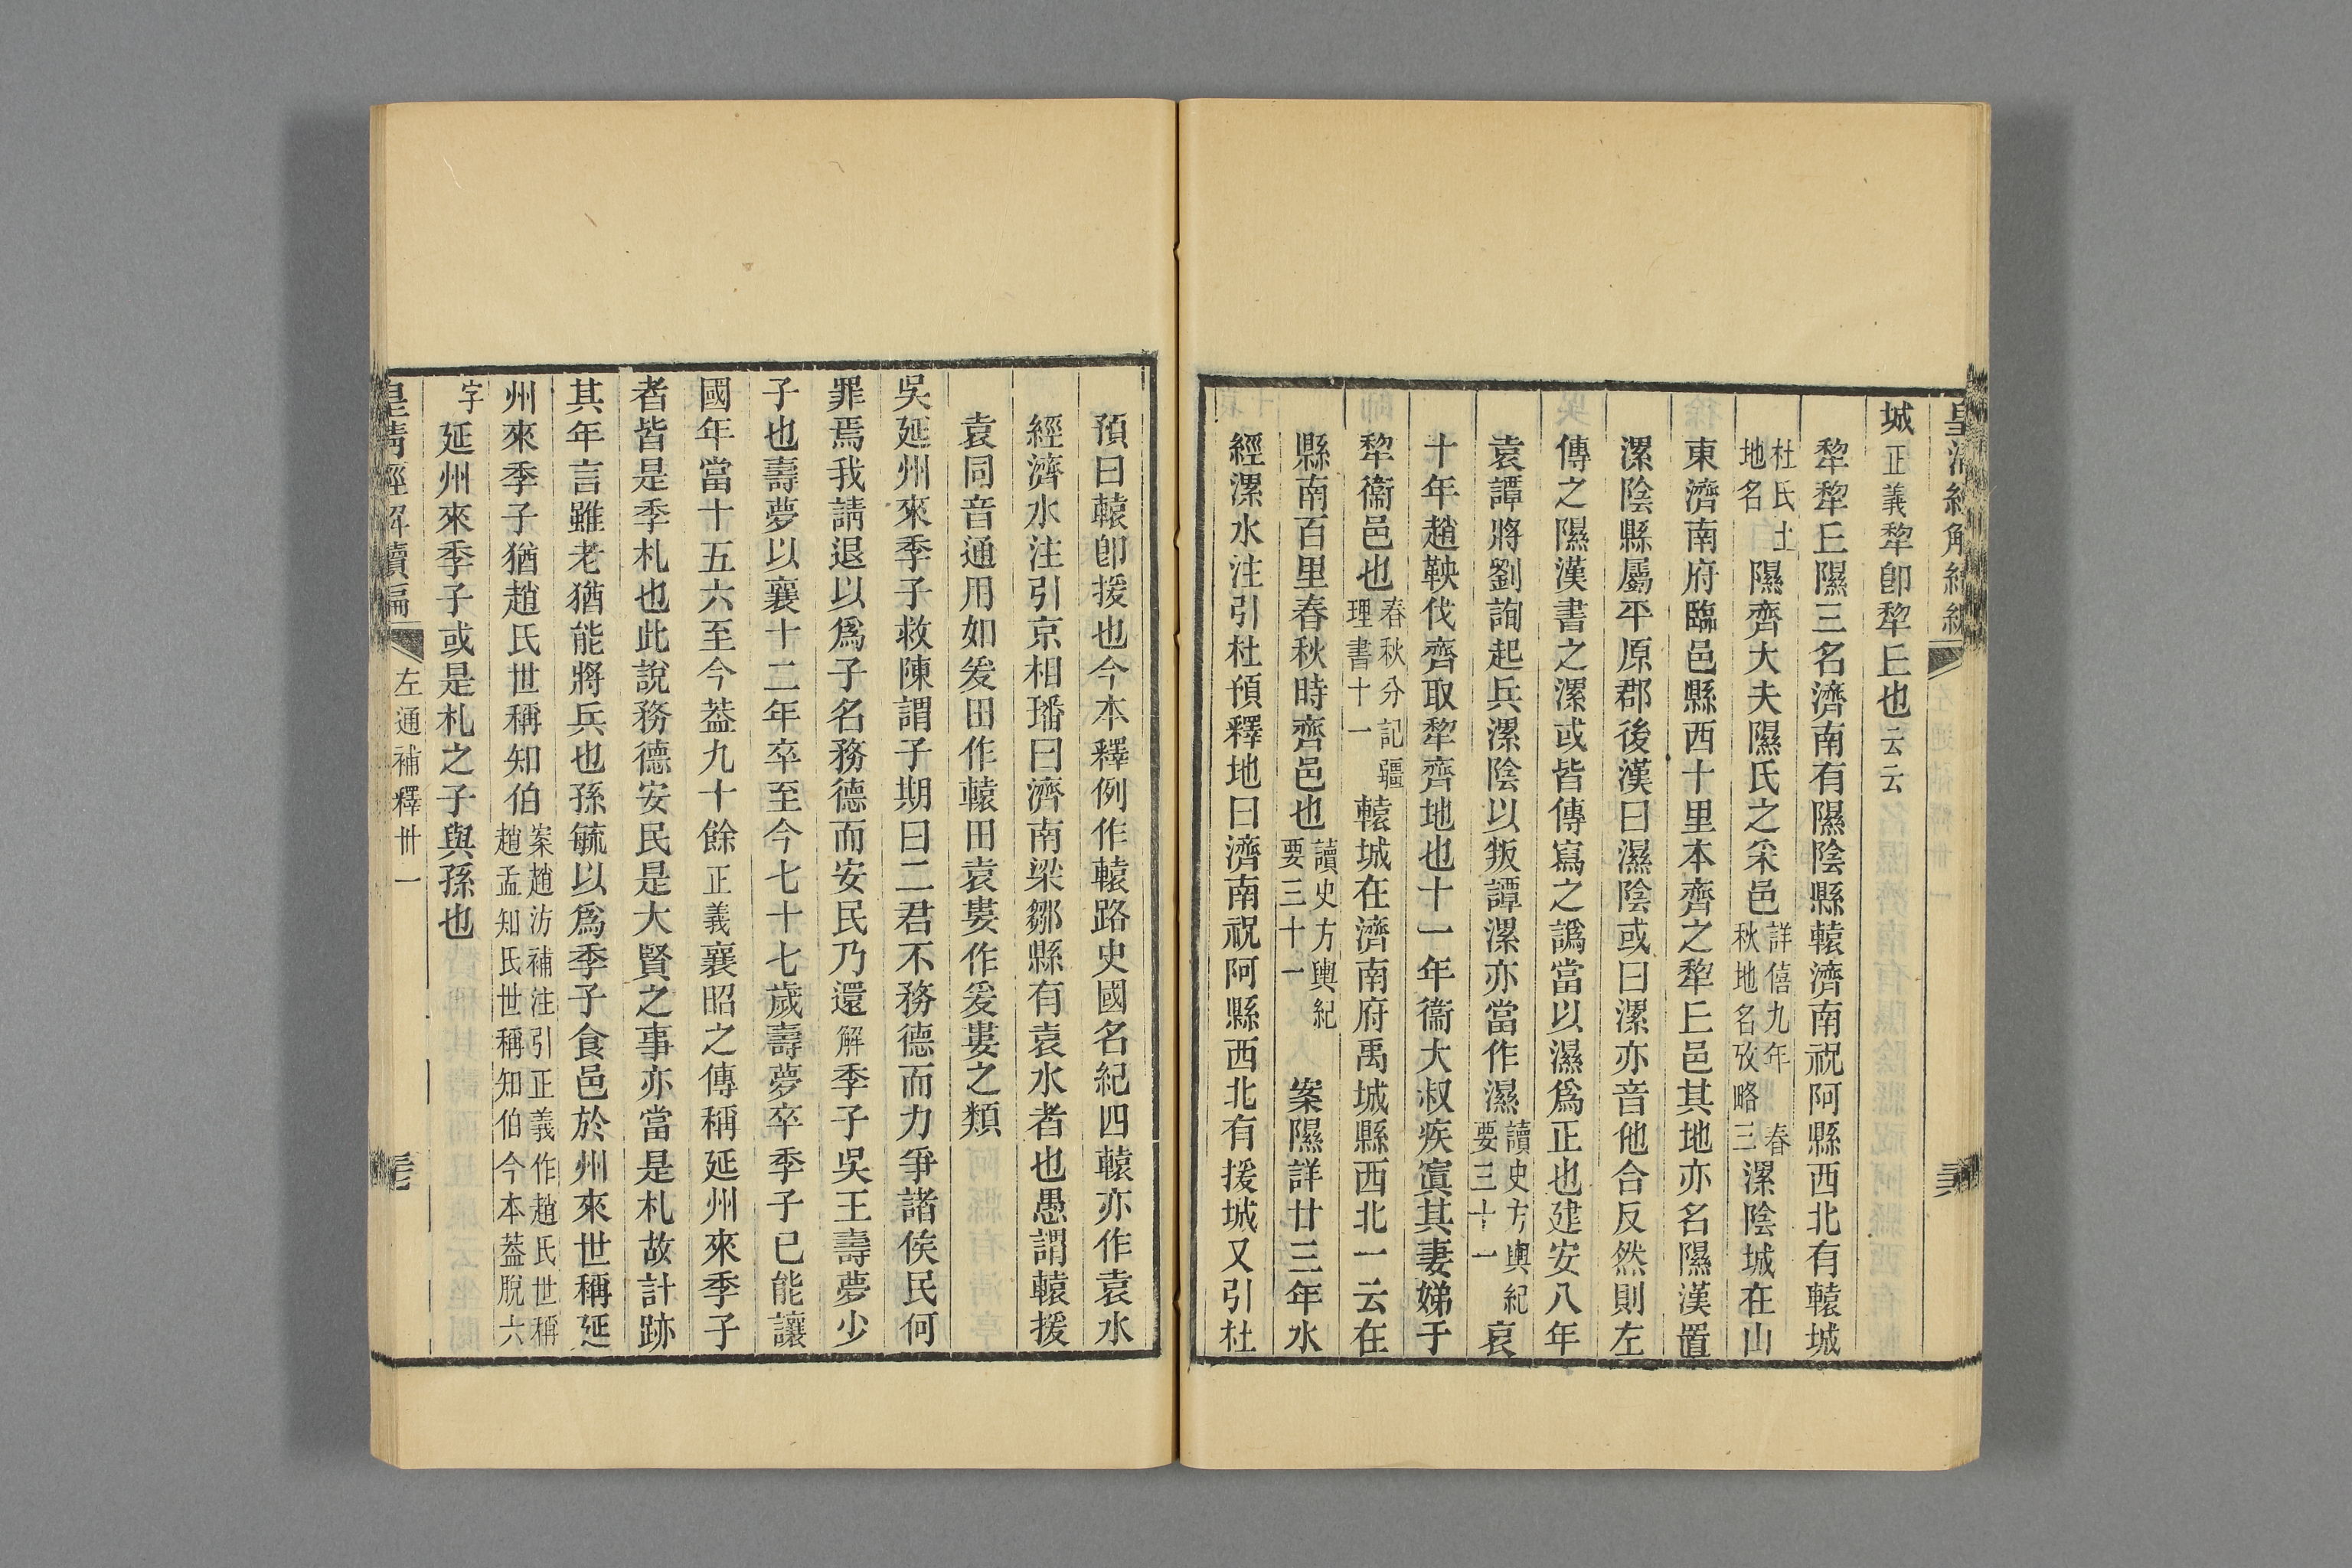 城正義犂卽犂丘也云云
犂犂丘隰三名濟南有隰陰縣轅濟南祝阿縣西北有轅城
杜氏土地名隰齊大夫隰氏之采邑詳僖九年春秋地名攷略三漯陰城在山
東濟南府臨邑縣西十里本齊之犂丘邑其地亦名隰漢置
漯陰縣屬平原郡後漢曰濕陰或曰漯亦音他合反然則左
傳之隰漢書之漯或皆傳寫之譌當以濕爲正也建安八年
袁譚將劉詢起兵漯陰以叛譚漯亦當作濕讀史方輿紀要三十一哀
十年趙鞅伐齊取犂齊地也十一年衞大叔疾寘其妻娣于
犂衞邑也春秋分記疆理書十一轅城在濟南府禹城縣西北一云在
縣南百里春秋時齊邑也讀史方輿紀要三十一案隰詳廿三年水
經漯水注引杜預釋地曰濟南祝阿縣西北有援城又引杜
預曰轅卽援也今本釋例作轅路史國名紀四轅亦作袁水
經濟水注引京相璠曰濟南梁鄒縣有袁水者也愚謂轅援
袁同音通用如爰田作轅田袁婁作爰婁之類
吳延州來季子救陳謂子期曰二君不務德而力爭諸侯民何
罪焉我請退以爲子名務德而安民乃還解季子吳王壽夢少
子也壽夢以襄十二年卒至今七十七歲壽夢卒季子已能讓
國年當十五六至今葢九十餘正義襄昭之傳稱延州來季子
者皆是季札也此說務德安民是大賢之事亦當是札故計跡
其年言雖老猶能將兵也孫毓以爲季子食邑於州來世稱延
州來季子猶趙氏世稱知伯案趙汸補注引正義作趙氏世稱趙孟知氏世稱知伯今本葢脫六
字延州來季子或是札之子與孫也
皇淸經解續編 左通補釋卅一